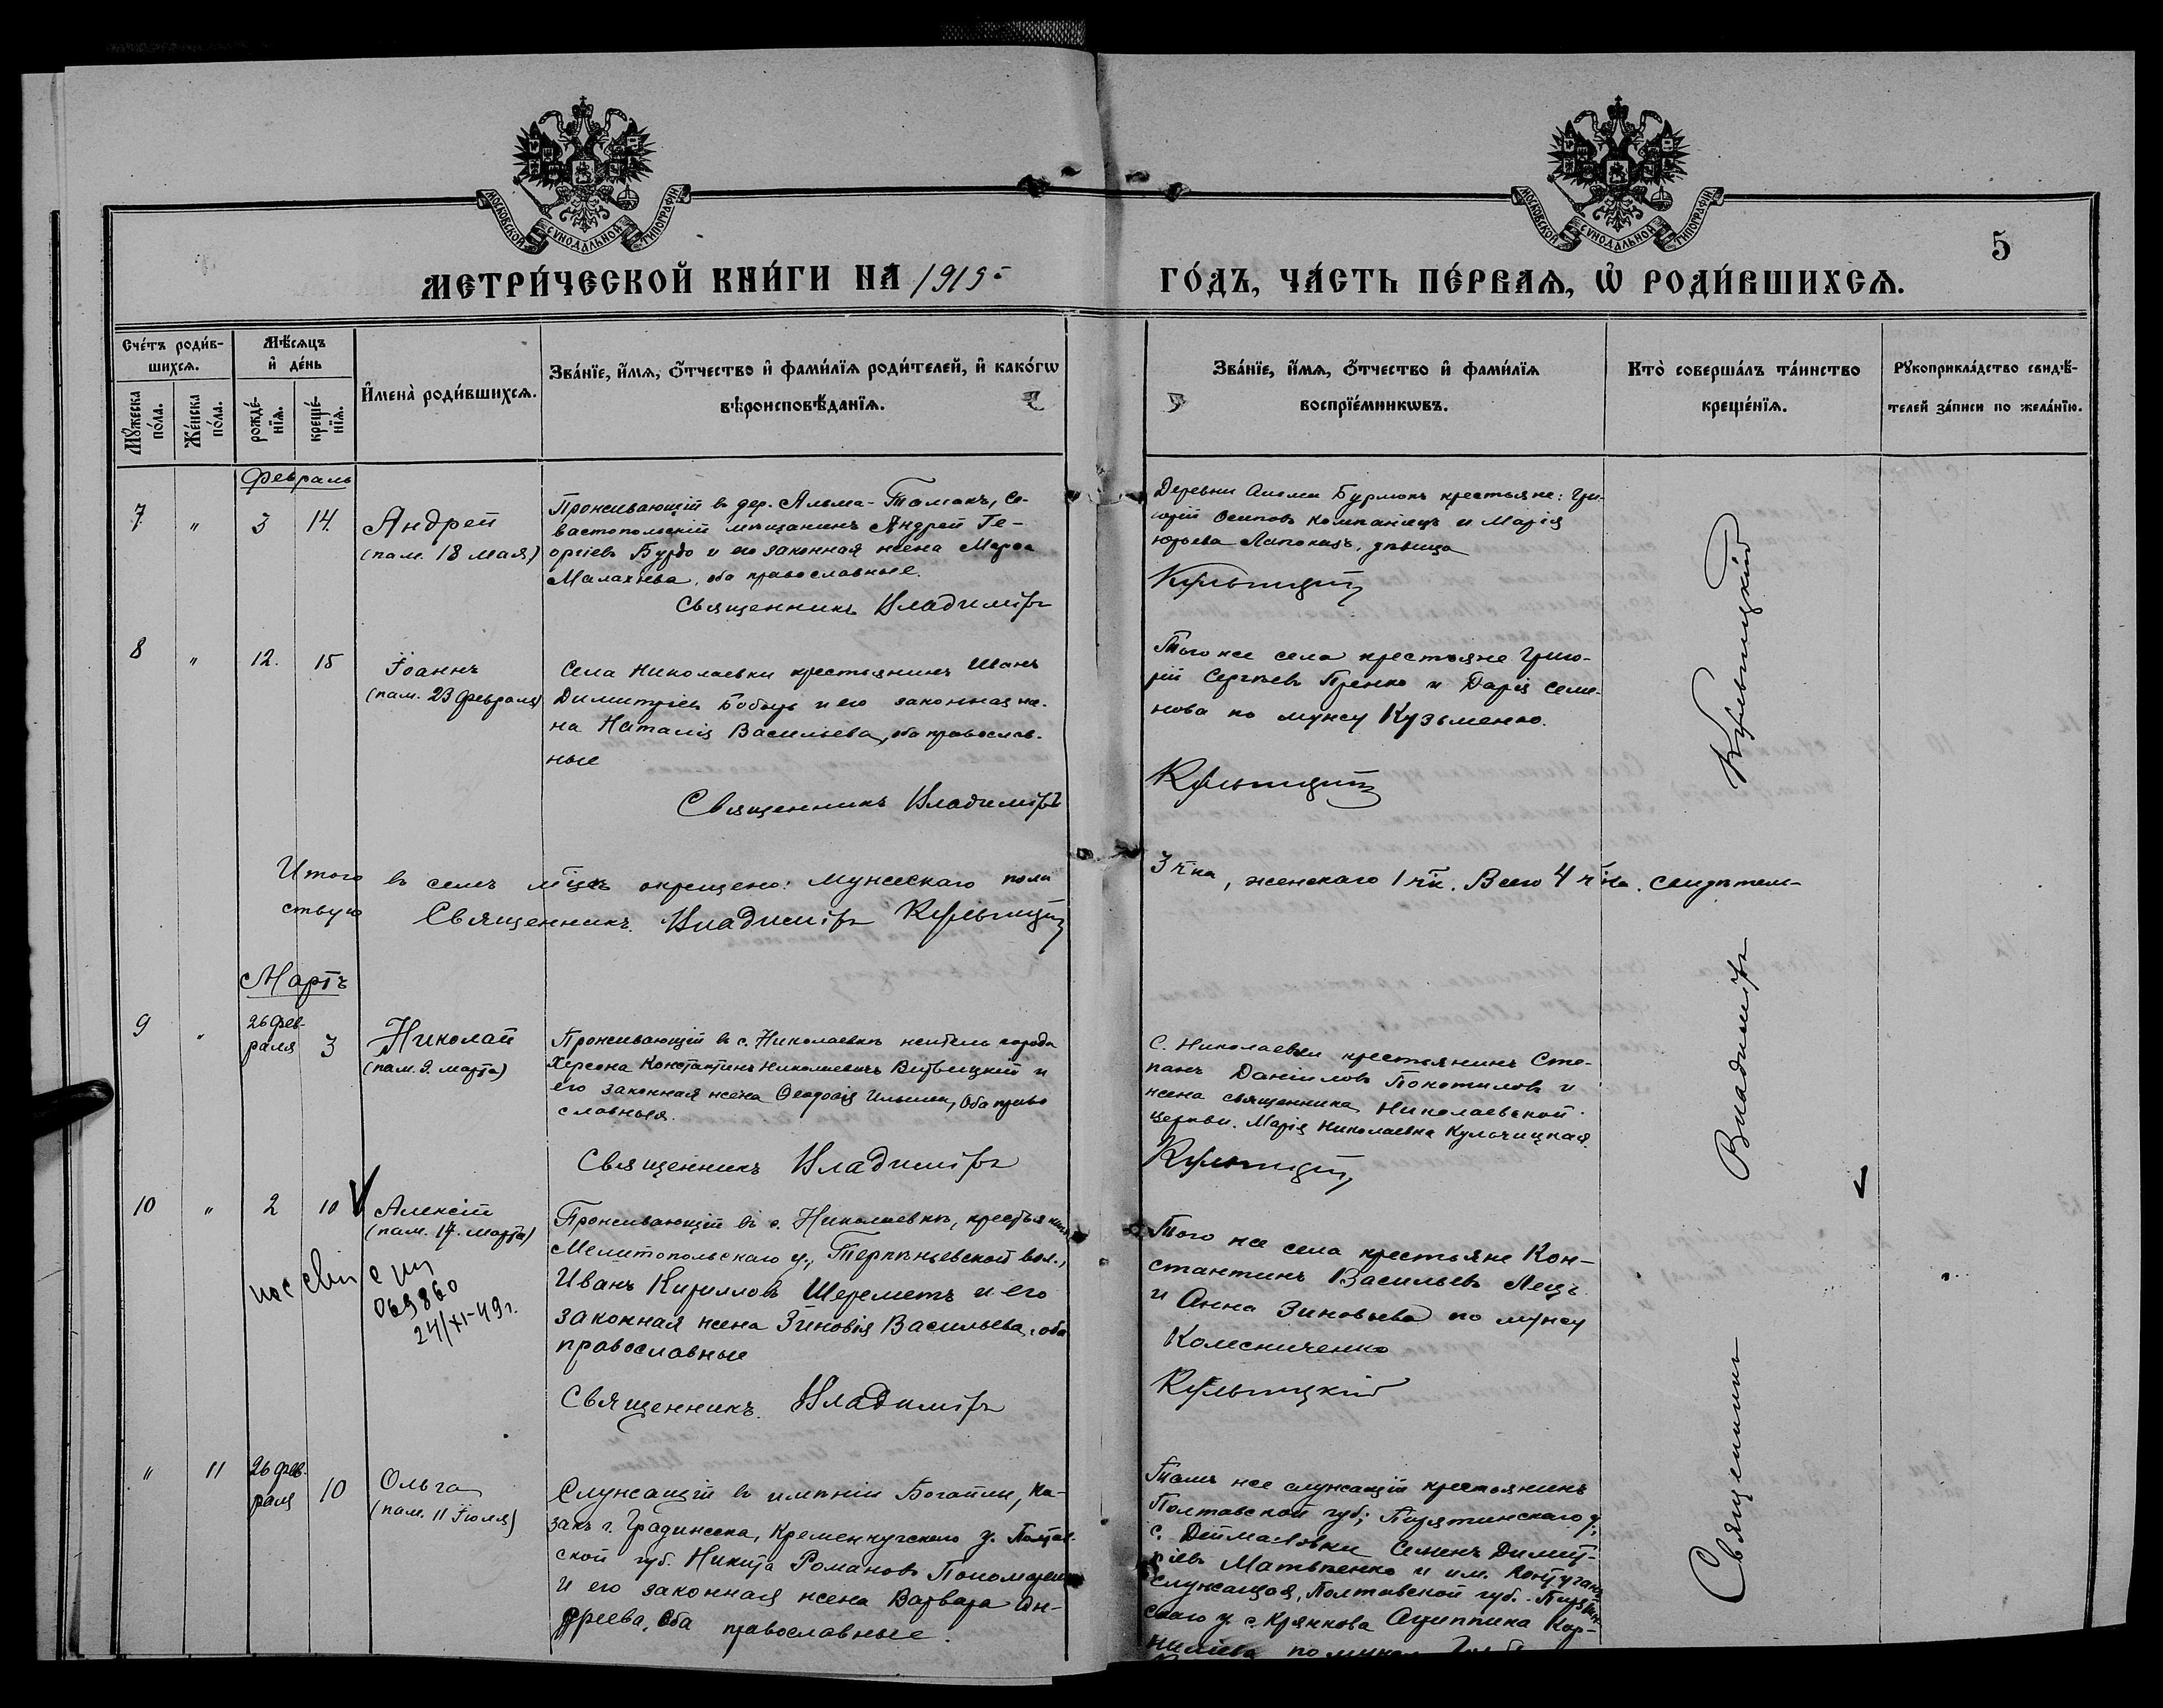 МОСКОВСКОЙ СУНОДАЛЬНОЙ ТИПОГРАФІИ
МОСКОВСКОЙ СУНОДАЛЬНОЙ ТИПОГРАФІИ
5
МЕТРИ́ЧЕСКОЙ КНИ́ГИ НА 1915
ГО́ДЪ, ЧА́СТЬ ПЕ́РВАЯ, Ѡ РОДИ́ВШИХСЯ.
Сче́тъ роди́в-
шихся.
Мꙋ́жеска по́ла.
Же́нска по́ла.
Мѣ́сяцъ
и҆ де́нь
рожде́-
нїя.
креще́-
нїя.
И҆мена̀ роди́вшихся.
Зва́нїе, и҆́мя, о҆́тчество и҆ фами́лїя роди́телей, и҆ како́гѡ
вѣроисповѣ́данїя.
Зва́нїе, и҆́мя, о҆́тчество и҆ фами́лїя
воспрїе́мникѡвъ.
Кто̀ соверша́лъ та́инство
креще́нїя.
Рꙋкоприкла́дство свидѣ́-
телей за́писи по жела́нїю.
Февраль
7 " 3 14. Андрей
(пам. 18 мая)
Проживающій в дер. Альма-Тамакъ, Се-
вастопольскій мѣщанинъ Андрей Ге-
оргіевъ Бурдо и его законная жена Марѳа
Малахіева, оба православные.
Священникъ Владиміръ
Деревни Алма Бурлюкъ крестьяне: Гри-
горій Осиповъ Компаніецъ и Марія
Юрьева, дѣвица
Кульчицкій
8 " 12. 15 Іоаннъ
(пам. 23 февраля)
Села Николаевки крестьянинъ Иванъ
Димитріевъ и его законная же-
на Наталія Васильева, оба православ-
ные
Священникъ Владиміръ
Того же села крестьяне Григо-
рій Сергѣевъ и Дарія Семе-
нова по мужу Кузьменко.
Кульчицкій
Итого въ семъ м-цѣ окрещено: мужескаго пола 3 ч-ка, женскаго 1 ч-к. Всего 4 ч-ка. Свидѣтель-
ствую Священникъ Владиміръ Кульчицкій
Мартъ
9 " 26 фев-
раля 3 Николай
(пам. 9. марта)
Проживающій в с. Николаевкѣ житель города
Херсона Константинъ Николаевичъ Витвицкій и
его законная жена Ѳеодосія Ильина, Оба право
славныя.
Священникъ Владиміръ
С. Николаевки крестьянинъ Сте-
панъ Даніиловъ Покотиловъ и
жена священника Николаевской
церкви. Марія Николаевна Кульчицкая.
Кульчицкій
10 " 2 10 Алексій
(пам. 17. марта)
069860
24/XI-49г.
Проживающій въ с. Николаевкѣ, крестьянинъ
Мелитопольскаго у., Терпѣньевской вол.,
Иванъ Кирилловъ Шереметъ и его
законная жена Зиновія Васильева, оба
православные
Священникъ. Владиміръ
Того же села крестьяне Кон-
стантинъ Васильевъ Лецъ
и Анна Зиновьева по мужу
Колесниченко
Кульчицкій
" 11 26 фев-
раля 10 Ольга
(пам. 11 Іюля)
Служащій въ имѣніи Богайли, ка-
закъ г. Градижска, Кременчугскаго у. Полтав-
ской губ. Никита Романовъ Пономаренко
и его законная жена Варвара Ан-
дреева, Оба православные.
Тамъ же служащій крестьянинъ
Полтавской губ., Пирятинскаго у,
с. Деймановки Семенъ Димит-
ріевъ Матвѣенко и им.
служащая, Полтавской губ. Пирятин-
скаго у с. Крячкова Агриппина Кор-
ниліева по мужу
Священникъ Владиміръ Кульчицкій